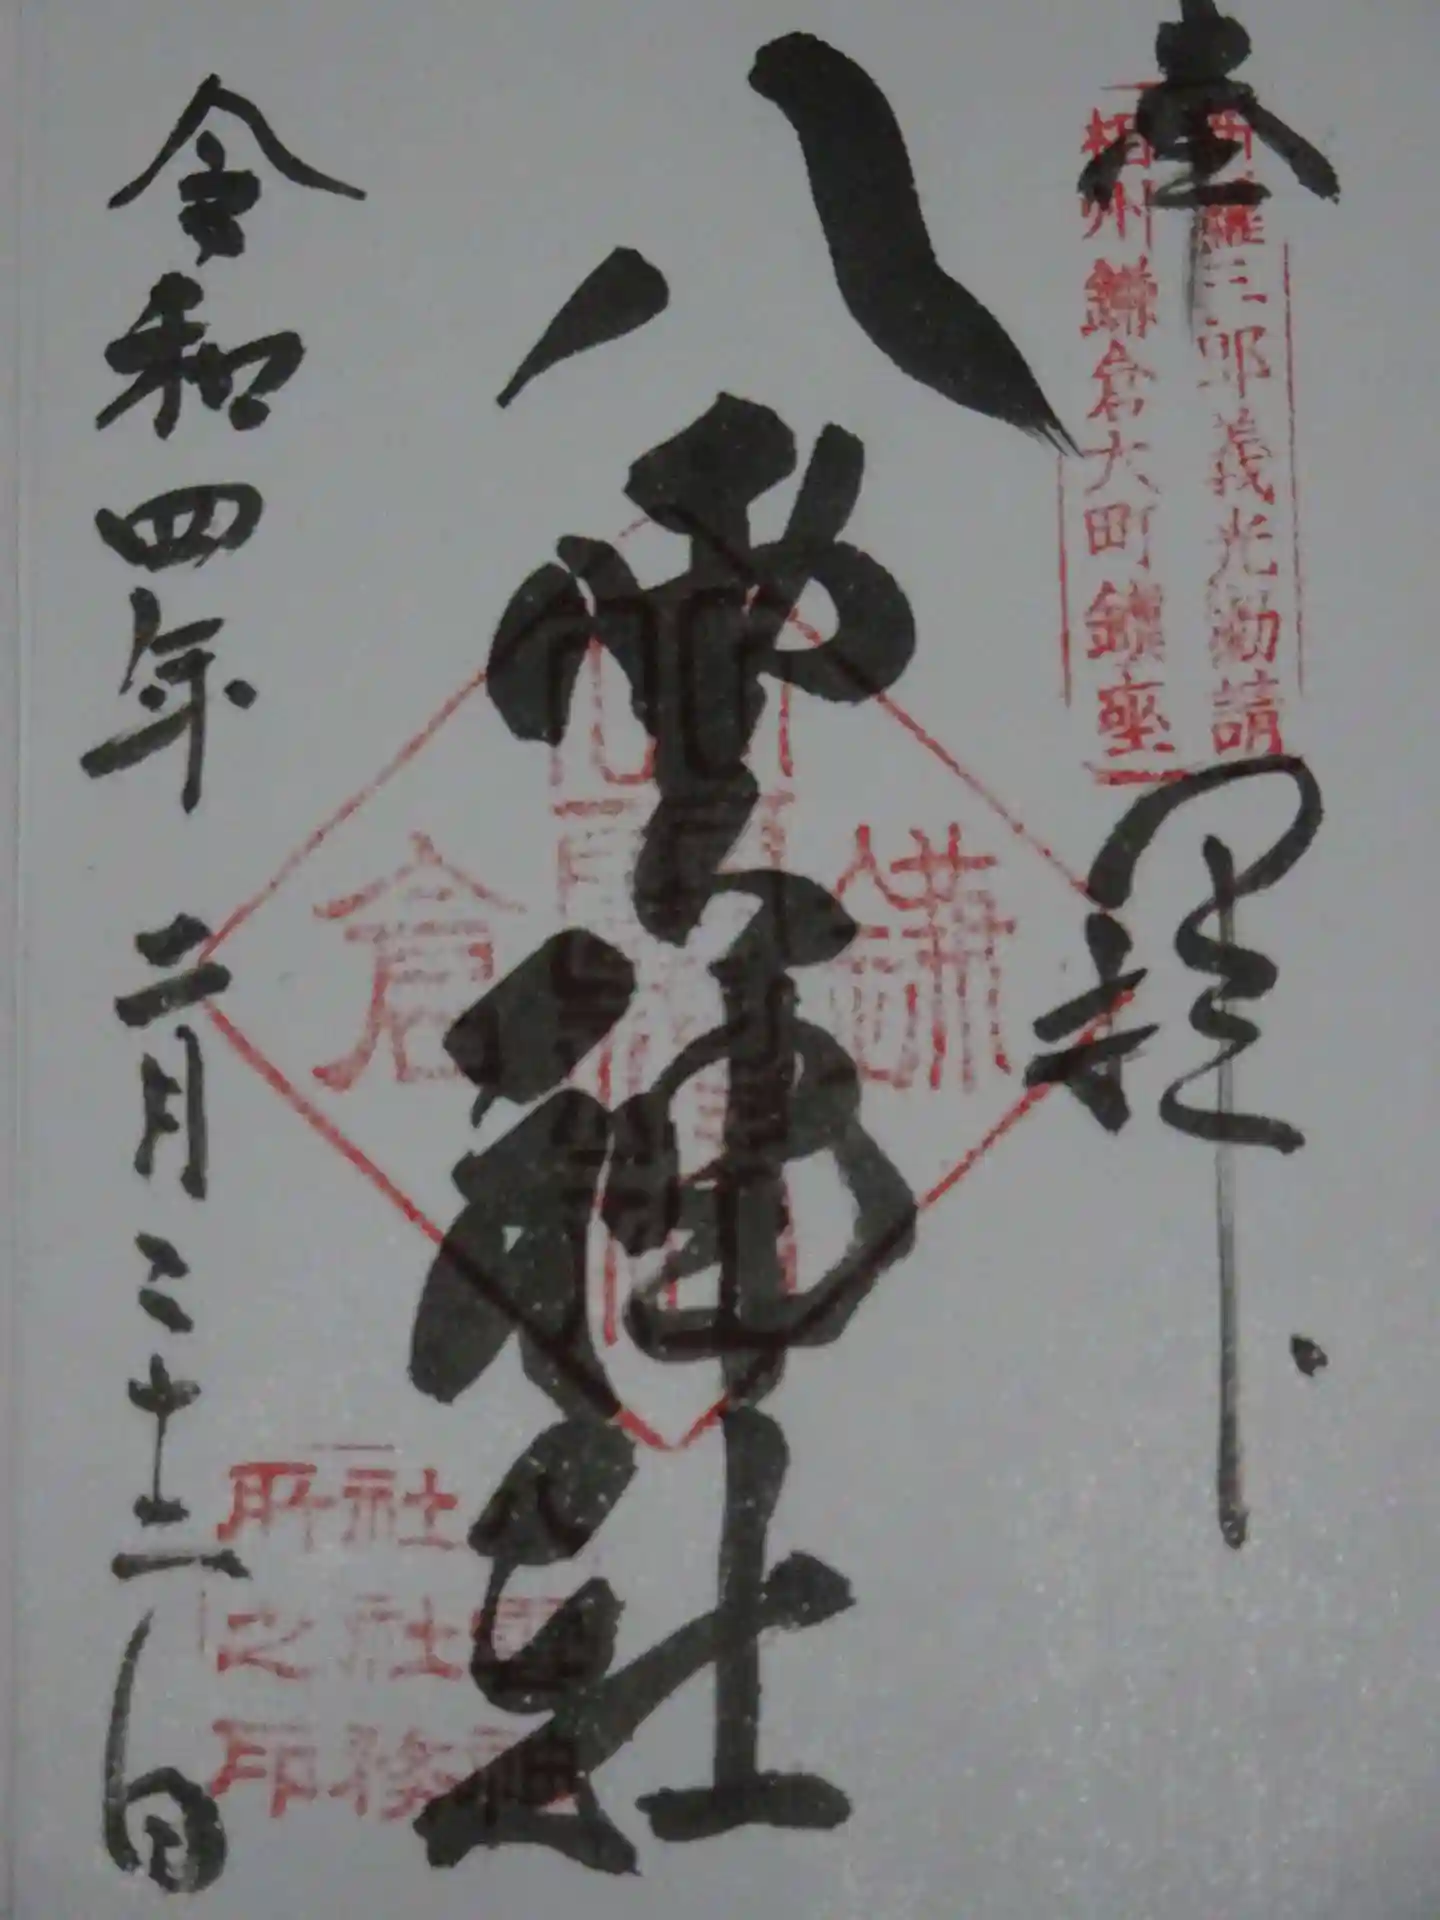 奉拝
新羅三郎義光勧請
相州鎌倉大町鎮座
八雲神社
鎌
倉
八雲神
社社務
所之印
令和四年二月二十二日